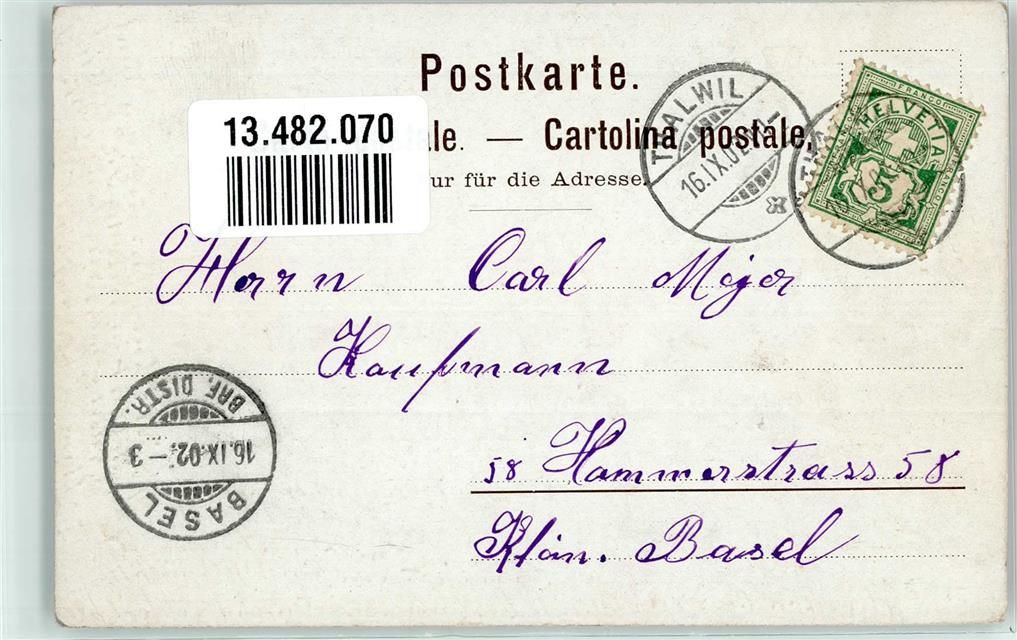 Postkarte.
13.482.070
ale. — Cartolina postale.
ur für die Adresse.
THALWIL
16.IX.02
FRANCO
HELVETIA
5
Herrn Carl Meyer
Kaufmann
58 Hammerstrass 58
Klein. Basel
BRF. DISTR.
16.IX.02. – 3
BASEL